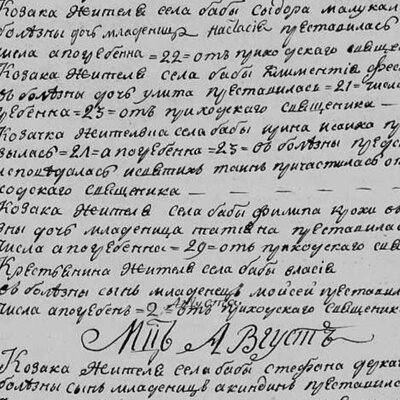 Козака жителя села бабы Сидора малукал
болезны дочь младеница настасія преставилась
числа а погребенна =22= отъ приходскаго священ
Козака Жителя Села бабы Климентія
въ болезны дочь улита преставилась =21= числа
гребенна =23= отъ приходскаго Священника —
Козачка жителка села бабы ирина исаиха пр
вылась =21= а погребенна =23= въ болезны
исповѣдалась исвятихъ таинъ причастилась от
ходскаго священника — — —
Козака Жителя Села бабы филипа крохи въ
зны дочь младеница татіана преставилась
числа а погребенна =29= отъ приходскаго свя
Крестьянина Жителя села бабы власія
въ болезны сынъ младенецъ мойсей преставил
Августа
числа а погребенъ =2= отъ приходскаго священник
Мць Августъ
Козака жителя села бабы стефана
болезны сынъ младенецъ акиндинъ преставился